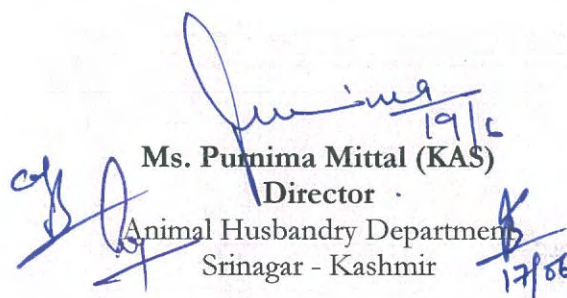 Purnima
19/6
Ms. Purnima Mittal (KAS)
Director
Animal Husbandry Department
Srinagar - Kashmir
17/06